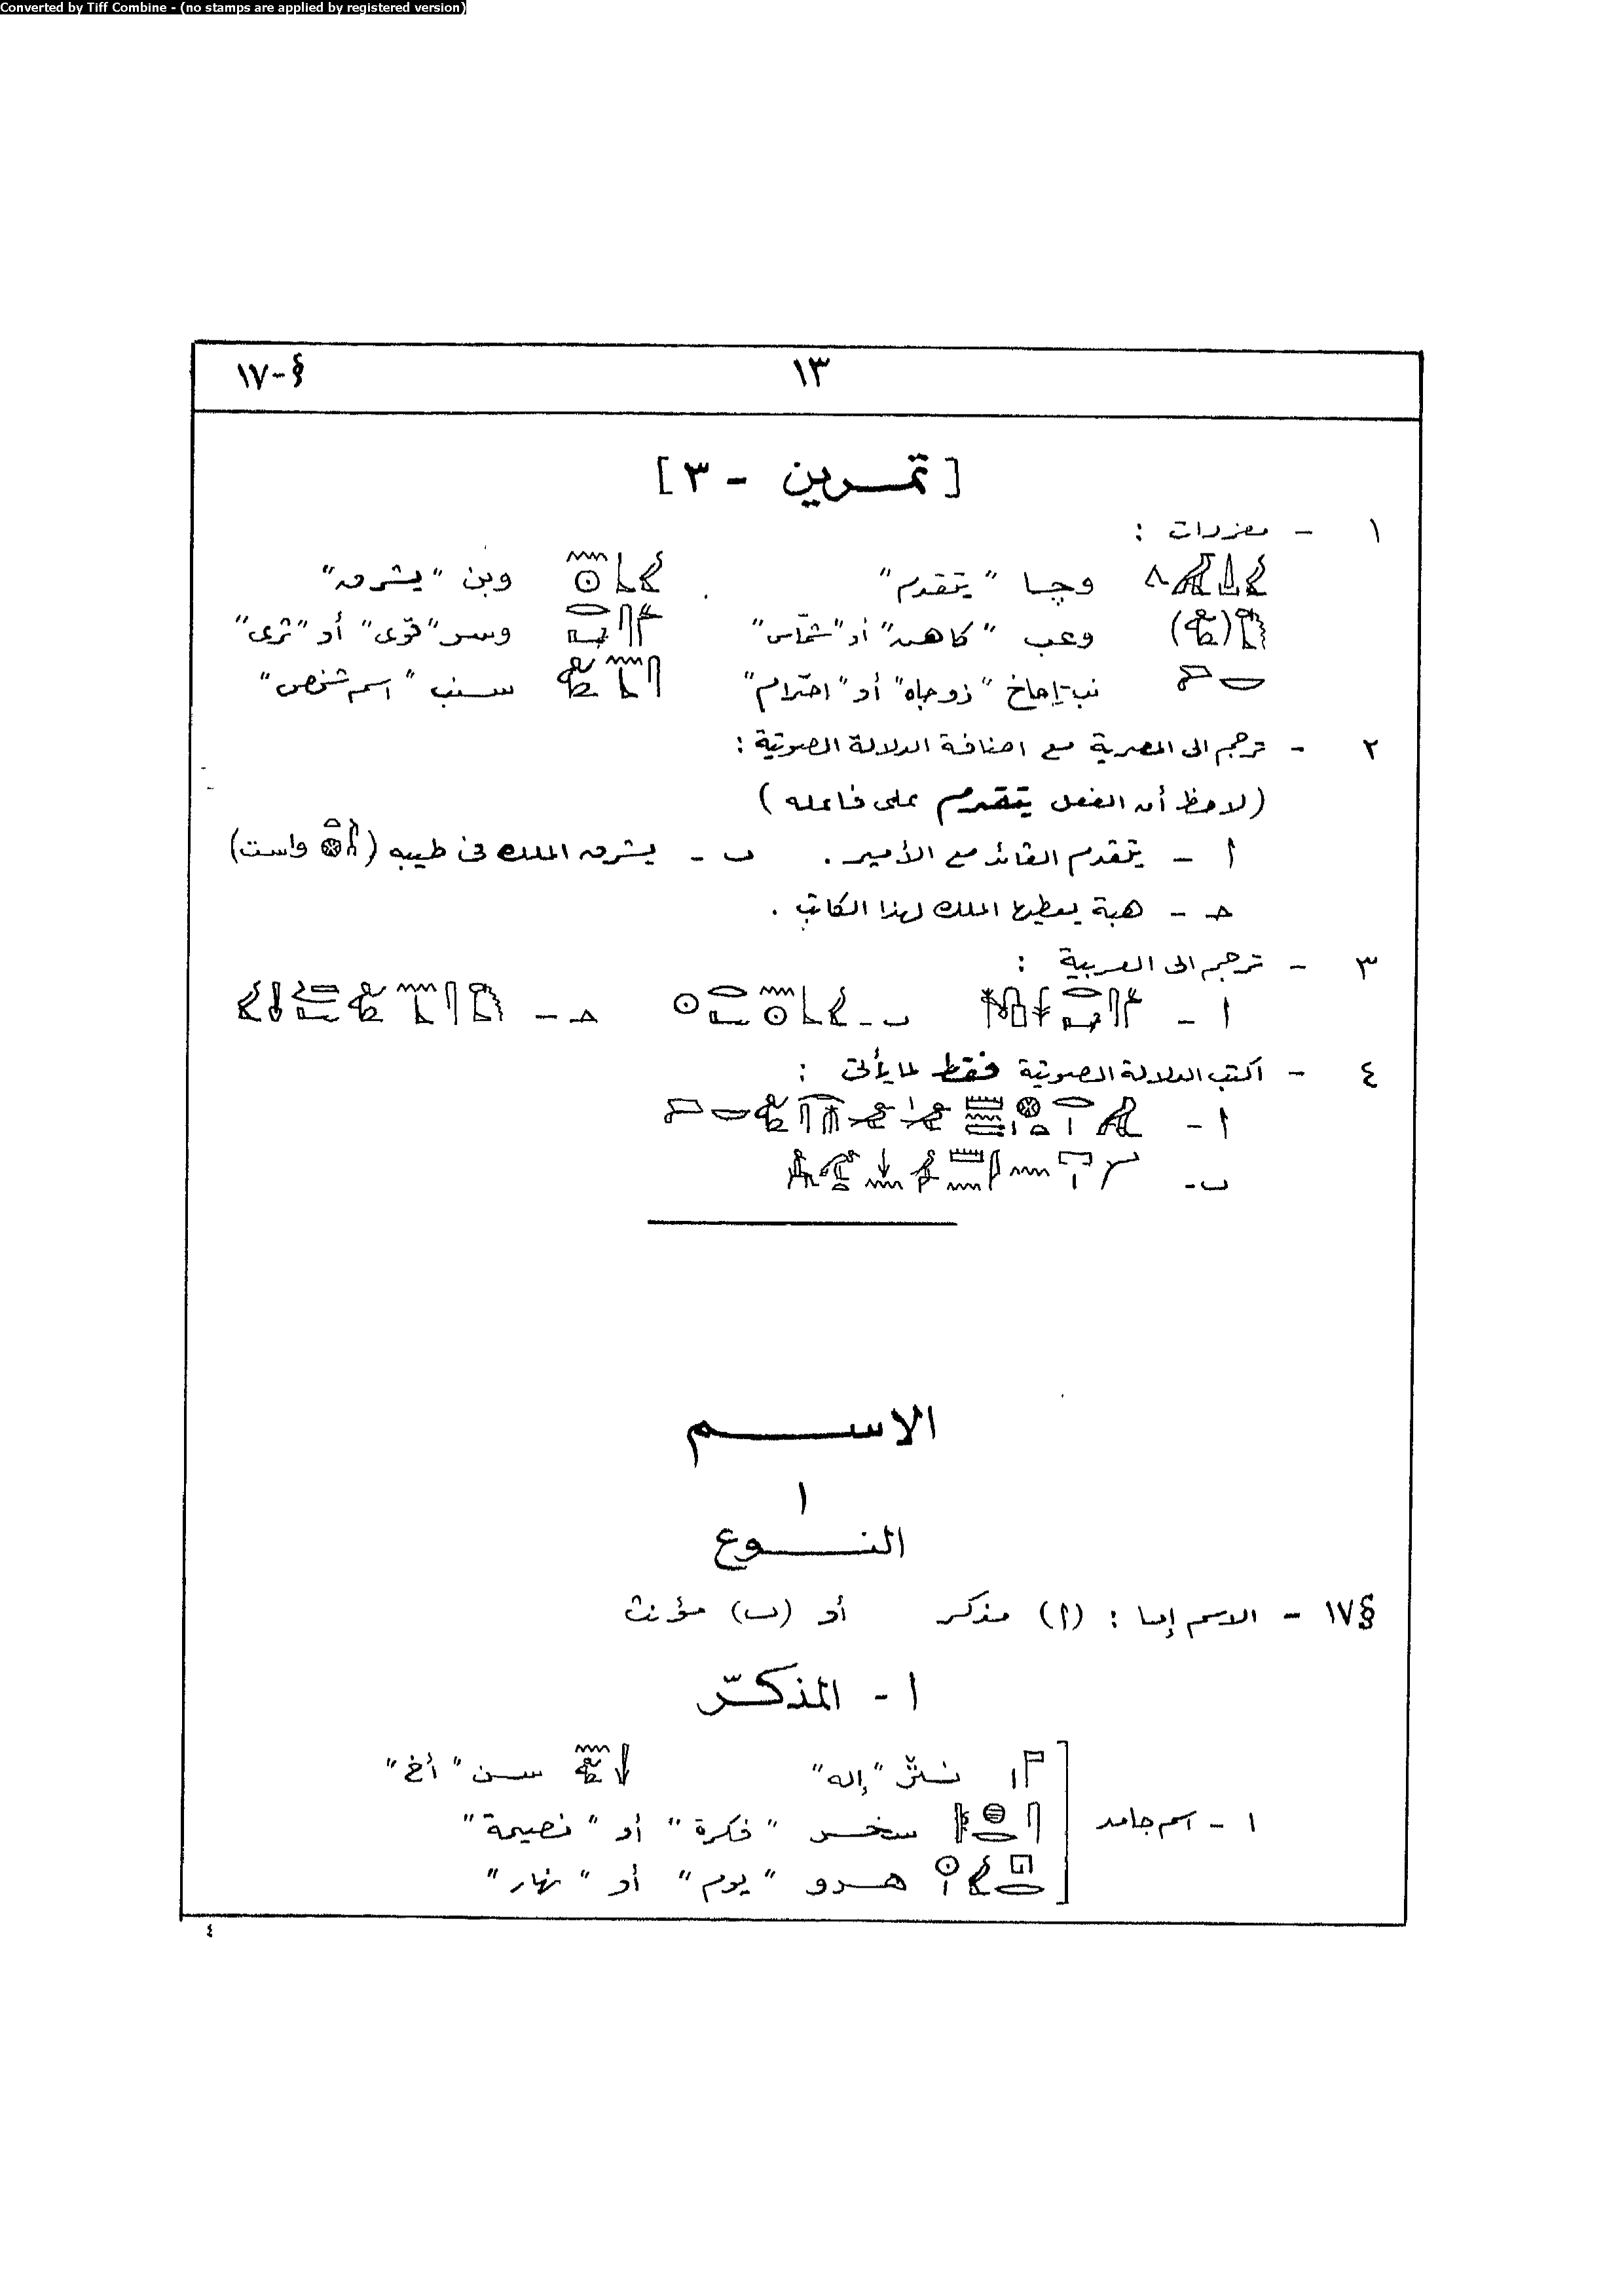 Converted by Tiff Combine - (no stamps are applied by registered version)
§-١٧
١٣
[ تمرين - ٣ ]
١ - مفردات :
وچا "يتقدم" وبن "يشرق"
وعب "كاهن" أو "شمّاس" وسر "قوى" أو "ثرى"
نب-إماخ "ذو جاه" أو "احترام" سنب "اسم شخص"
٢ - ترجم الى المصرية مع اضافة الدلالة الصوتية :
(لاحظ أن الفعل يتقدم على فاعله)
أ - يتقدم القائد مع الأمير . ب - يشرق الملك فى طيبه ( واست)
حـ - هبة يعطيها الملك لهذا الكاتب .
٣ - ترجم الى العربية :
أ - ب - حـ -
٤ - اكتب الدلالة الصوتية فقط لما يأتى :
أ -
ب -
الاسم
١
النوع
§١٧ - الاسم إما : (أ) مذكر أو (ب) مؤنث
١ - المذكّر
١ - اسم جامد
نثر "إله" سن "أخ"
سخر "فكرة" أو "نصيحة"
هرو "يوم" أو "نهار"
٤